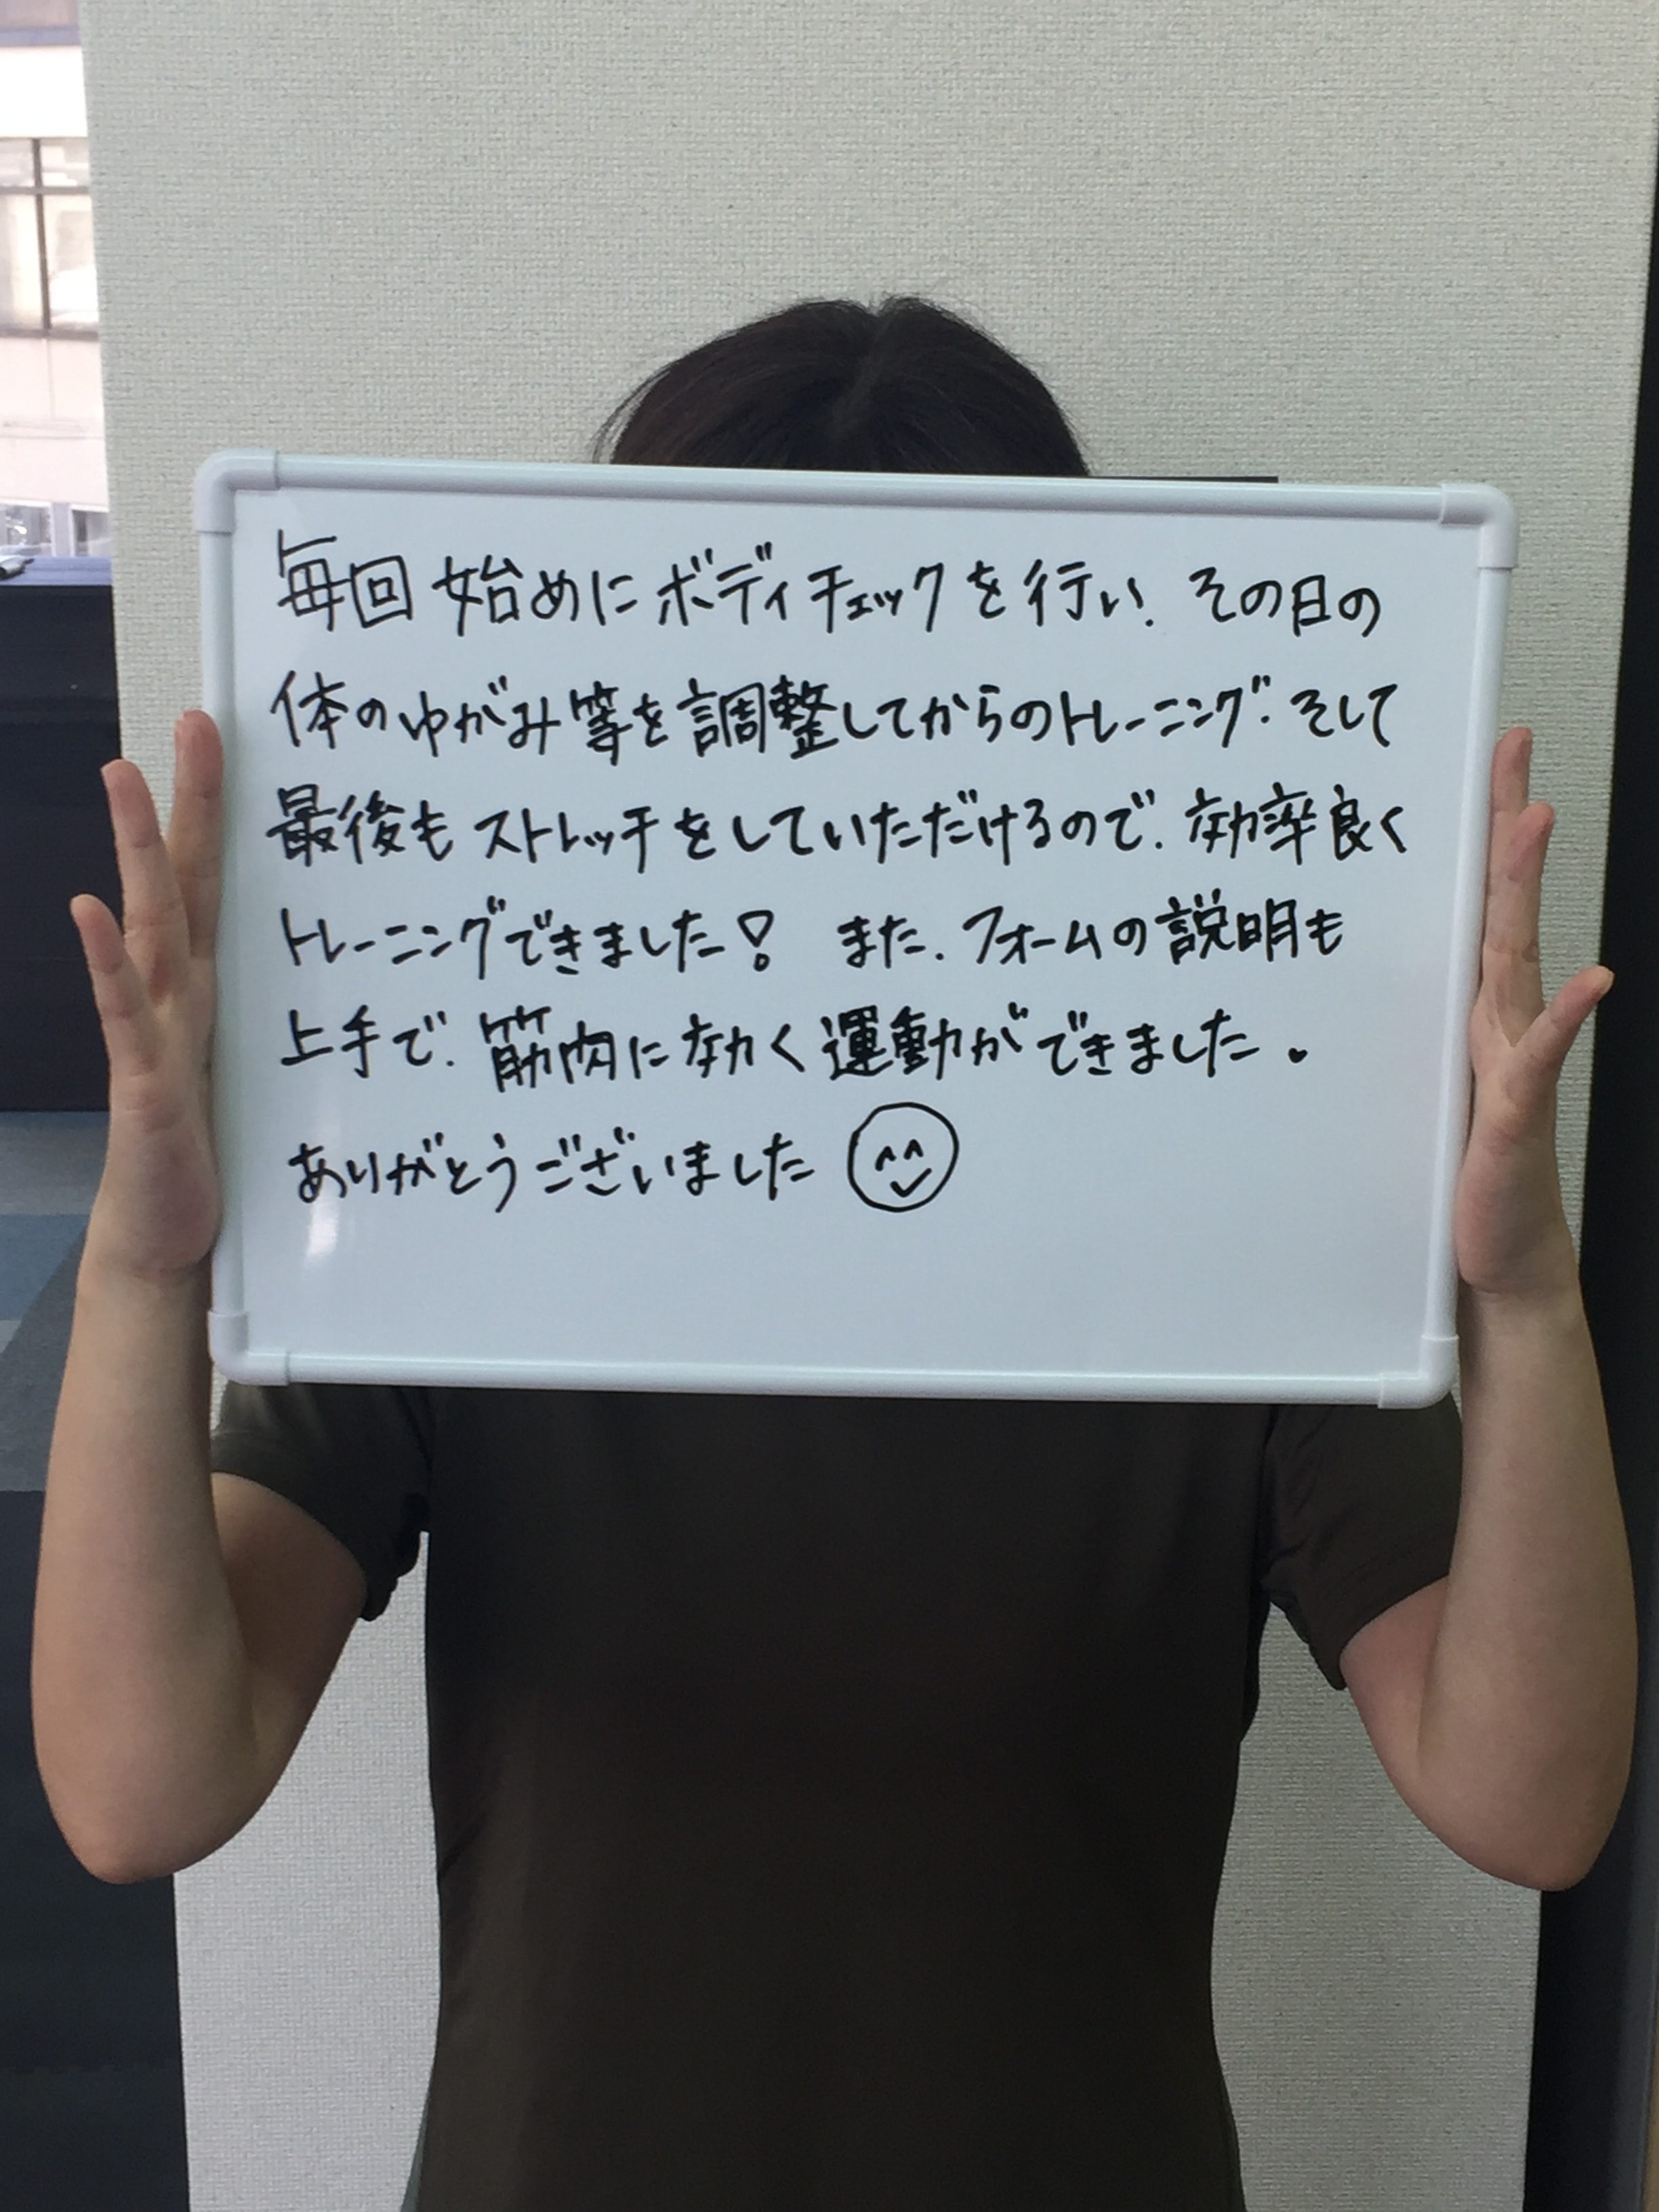 毎回始めにボディチェックを行い、その日の
体のゆがみ等を調整してからのトレーニング。そして
最後もストレッチをしていただけるので、効率良く
トレーニングできました！ また、フォームの説明も
上手で、筋肉に効く運動ができました。
ありがとうございました